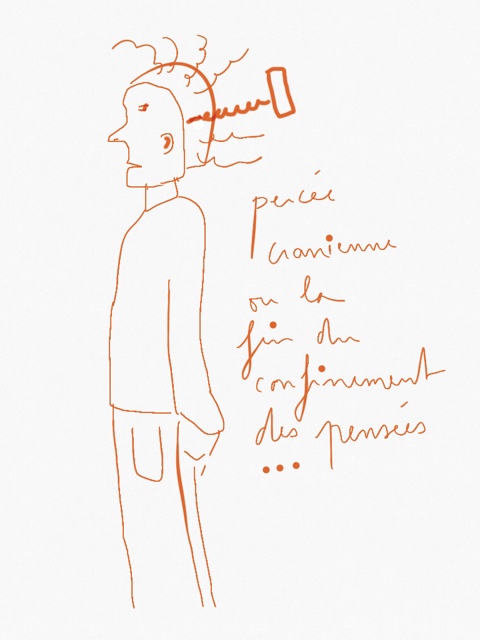 percée
cranienne
ou la
fin du
confinement
des pensées
...